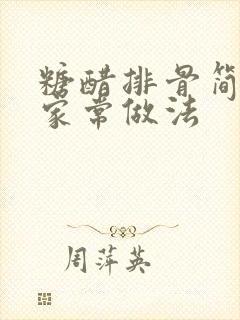 糖醋排骨简
家常做法
周萍英